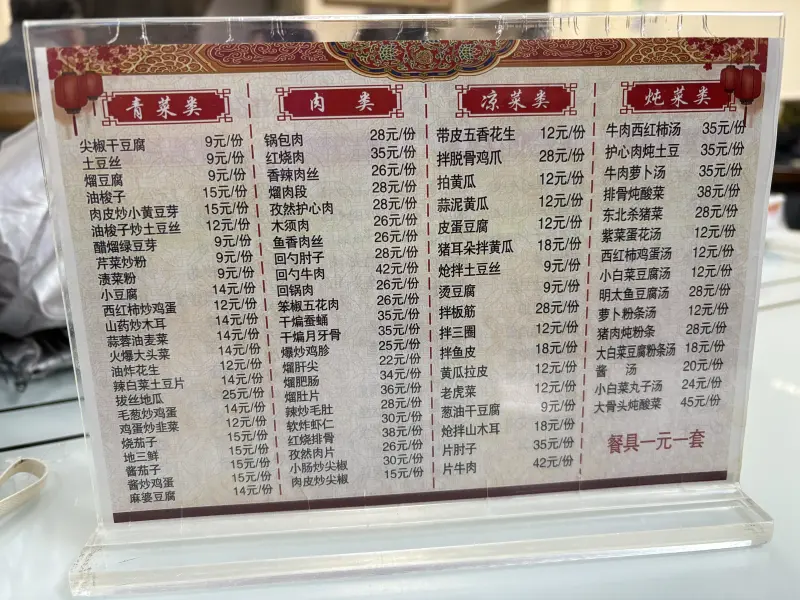 青菜类
尖椒干豆腐 9元/份
土豆丝 9元/份
熘豆腐 9元/份
油梭子 15元/份
肉皮炒小黄豆芽 15元/份
油梭子炒土豆丝 12元/份
醋熘绿豆芽 9元/份
芹菜炒粉 9元/份
渍菜粉 9元/份
小豆腐 14元/份
西红柿炒鸡蛋 12元/份
山药炒木耳 14元/份
蒜蓉油麦菜 14元/份
火爆大头菜 14元/份
油炸花生 12元/份
辣白菜土豆片 14元/份
拔丝地瓜 25元/份
毛葱炒鸡蛋 14元/份
鸡蛋炒韭菜 12元/份
烧茄子 15元/份
地三鲜 15元/份
酱茄子 15元/份
酱炒鸡蛋 15元/份
麻婆豆腐 14元/份
肉 类
锅包肉 28元/份
红烧肉 35元/份
香辣肉丝 26元/份
熘肉段 28元/份
孜然护心肉 28元/份
木须肉 26元/份
鱼香肉丝 26元/份
回勺肘子 28元/份
回勺牛肉 42元/份
回锅肉 26元/份
笨椒五花肉 26元/份
干煸蚕蛹 35元/份
干煸月牙骨 35元/份
爆炒鸡胗 25元/份
熘肝尖 22元/份
熘肥肠 34元/份
熘肚片 36元/份
辣炒毛肚 28元/份
软炸虾仁 30元/份
红烧排骨 38元/份
孜然肉片 26元/份
小肠炒尖椒 30元/份
肉皮炒尖椒 15元/份
凉菜类
带皮五香花生 12元/份
拌脱骨鸡爪 28元/份
拍黄瓜 12元/份
蒜泥黄瓜 12元/份
皮蛋豆腐 12元/份
猪耳朵拌黄瓜 18元/份
炝拌土豆丝 9元/份
烫豆腐 9元/份
拌板筋 28元/份
拌三圈 12元/份
拌鱼皮 18元/份
黄瓜拉皮 12元/份
老虎菜 12元/份
葱油干豆腐 9元/份
炝拌山木耳 18元/份
片肘子 35元/份
片牛肉 42元/份
炖菜类
牛肉西红柿汤 35元/份
护心肉炖土豆 35元/份
牛肉萝卜汤 35元/份
排骨炖酸菜 38元/份
东北杀猪菜 28元/份
紫菜蛋花汤 12元/份
西红柿鸡蛋汤 12元/份
小白菜豆腐汤 12元/份
明太鱼豆腐汤 28元/份
萝卜粉条汤 12元/份
猪肉炖粉条 28元/份
大白菜豆腐粉条汤 18元/份
酱 汤 20元/份
小白菜丸子汤 24元/份
大骨头炖酸菜 45元/份
餐具一元一套